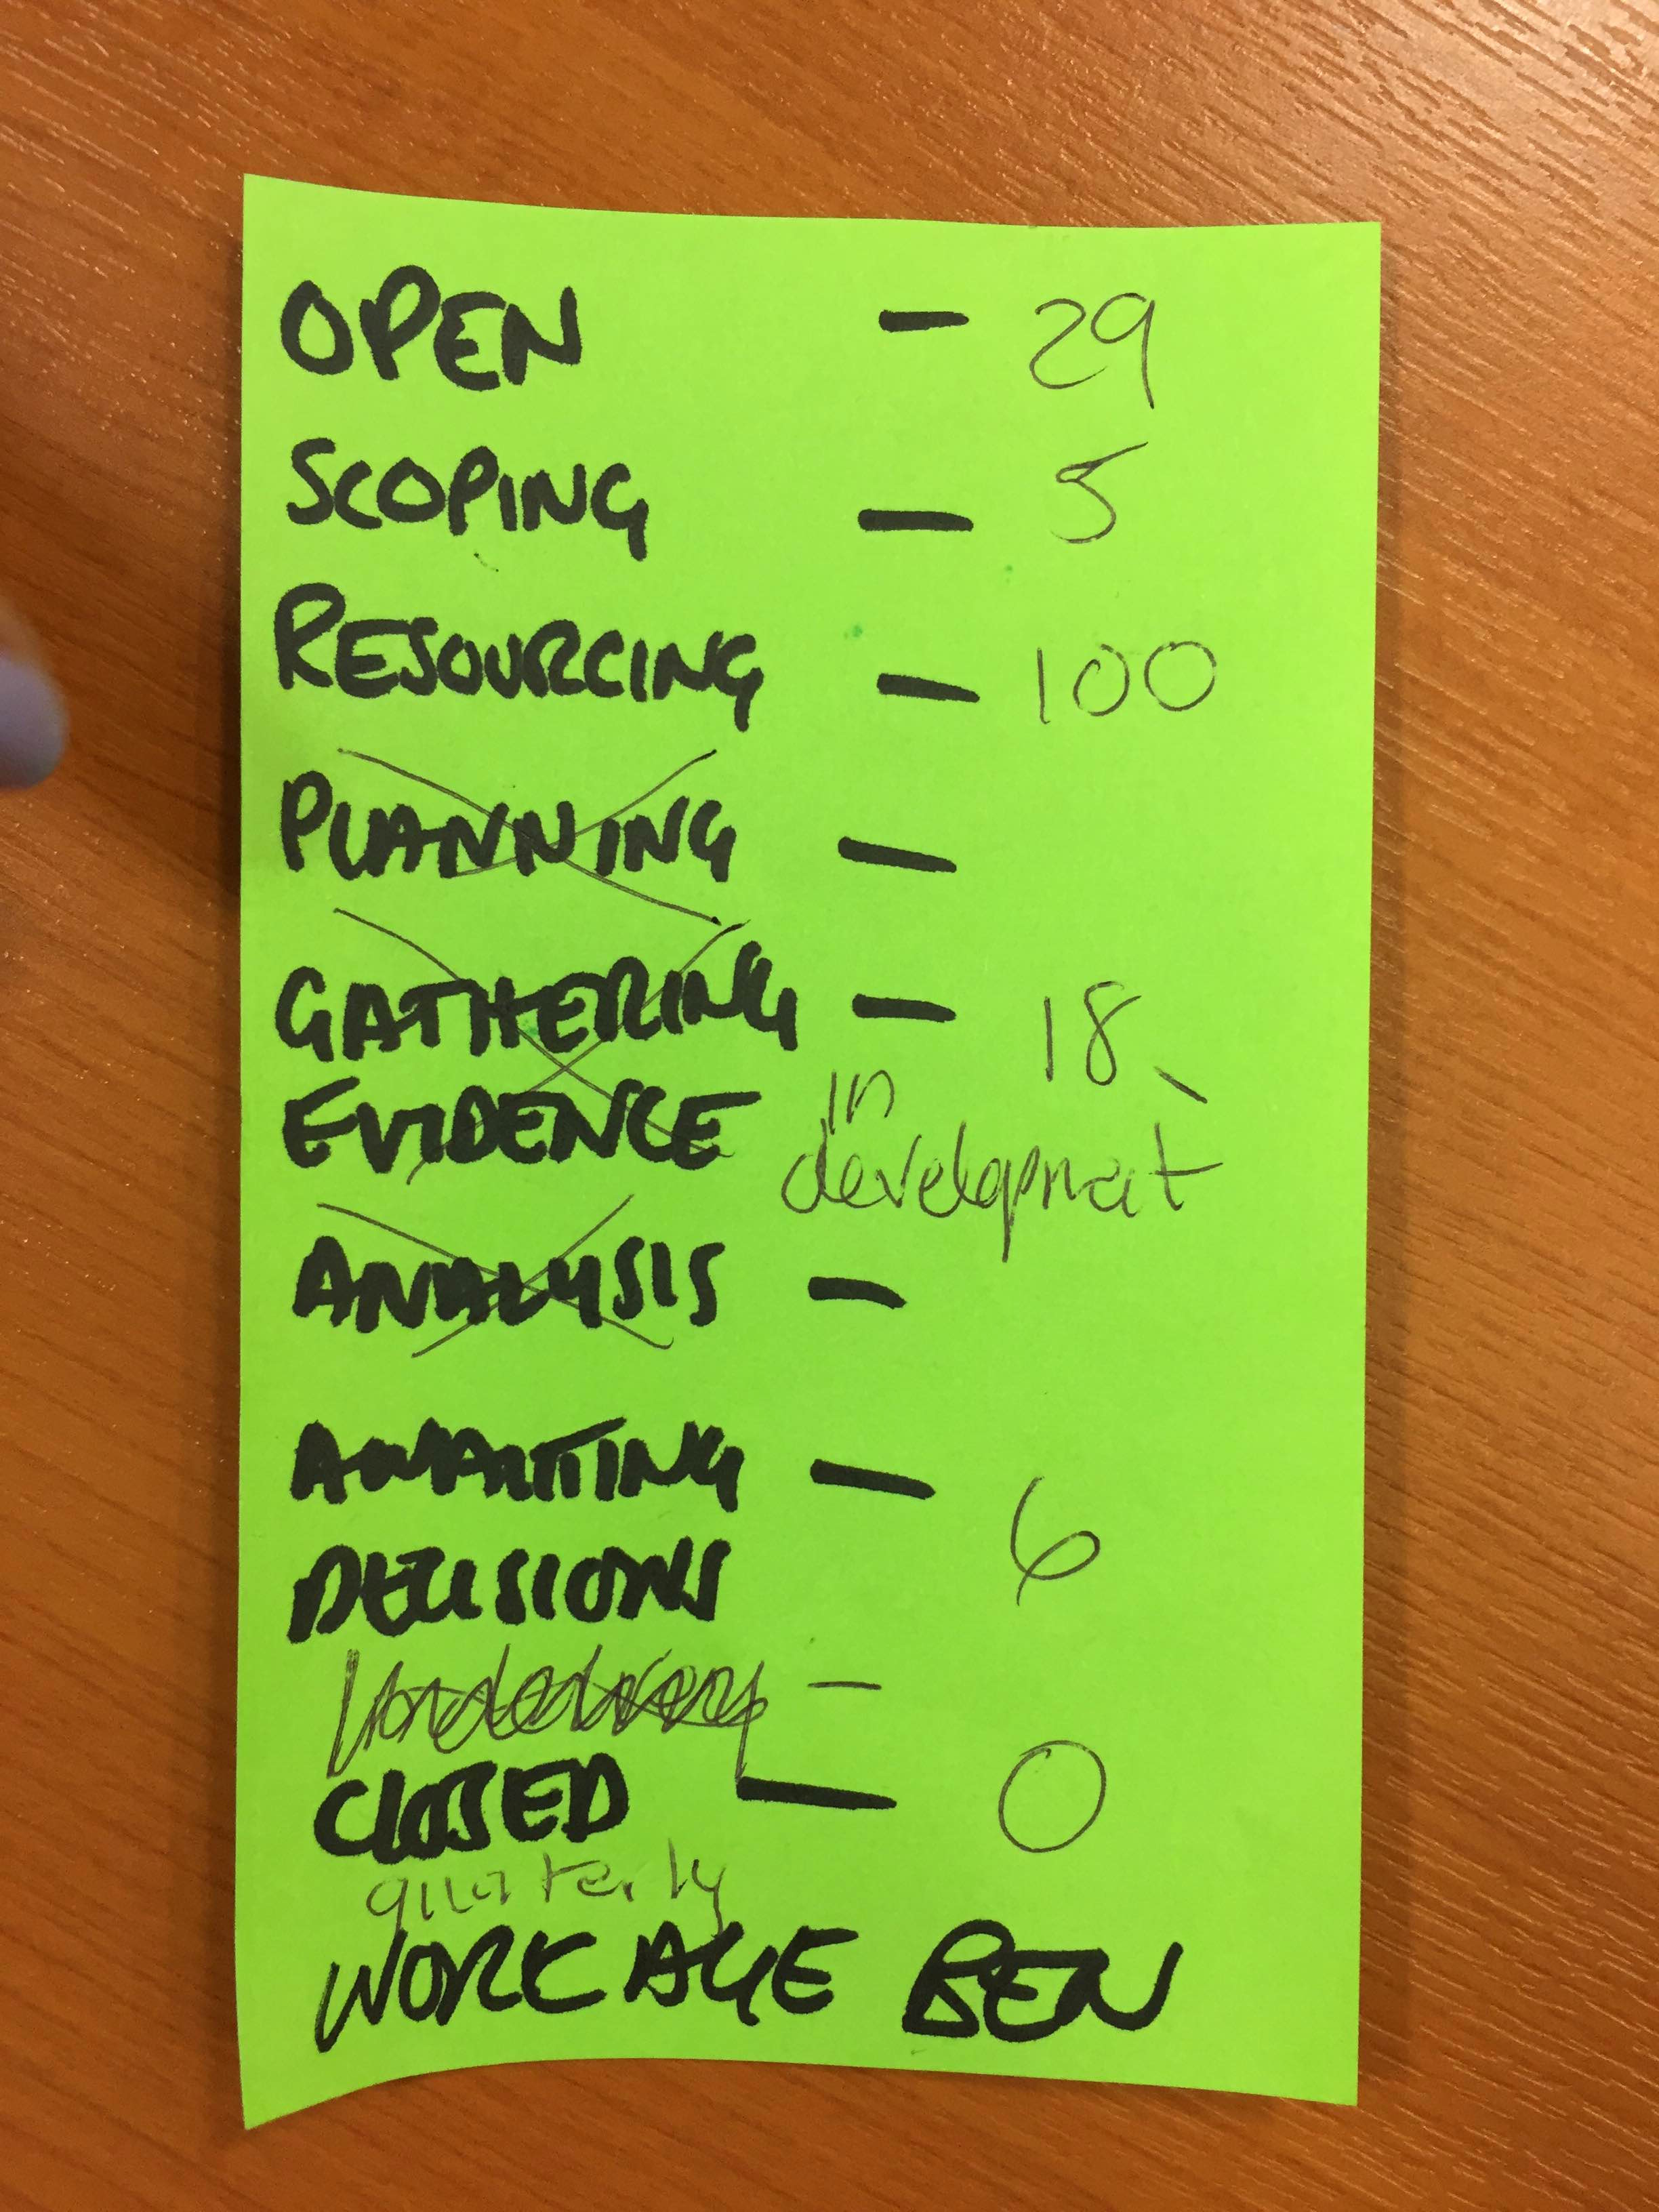 OPEN - 29
SCOPING - 5
RESOURCING - 100
PLANNING -
GATHERING - 18
EVIDENCE in development
ANALYSIS -
AWAITING -
DECISIONS 6
Underway -
CLOSED - 0
quarterly
WORK AGE BEN